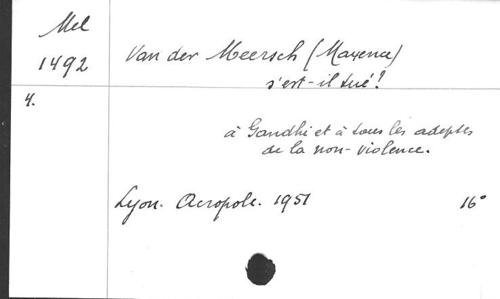 Mel
1492
Van der Meersch (Maxence)
s'est-il tué?
4.
à Gandhi et à tous les adeptes
de la non-violence.
Lyon. Acropole. 1951
16°